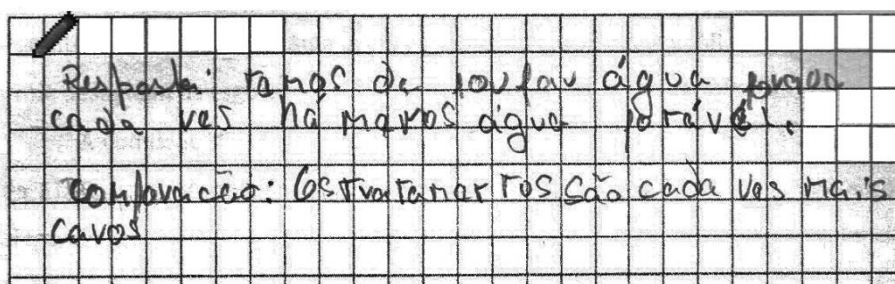 Resposta: temos de poupar água porque
cada ves há menos água potável.
comparação: Os tratamentos são cada ves mais
caros